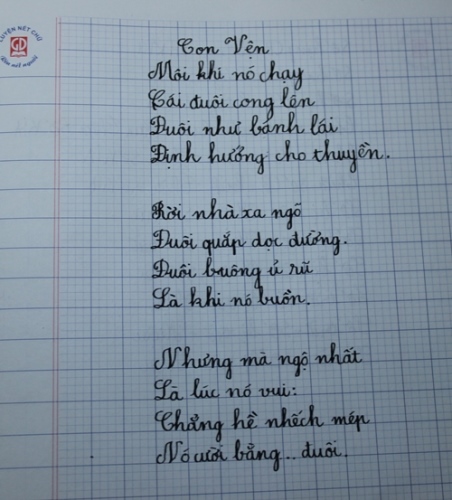 LUYỆN NÉT CHỮ
GD
Rèn nết người
Con Vện
Mỗi khi nó chạy
Cái đuôi cong lên
Đuôi như bánh lái
Định hướng cho thuyền.
Rời nhà xa ngõ
Đuôi quắp dọc đường.
Đuôi buông ủ rũ
Là khi nó buồn.
Nhưng mà ngộ nhất
Là lúc nó vui:
Chẳng hề nhếch mép
Nó cười bằng.. đuôi.